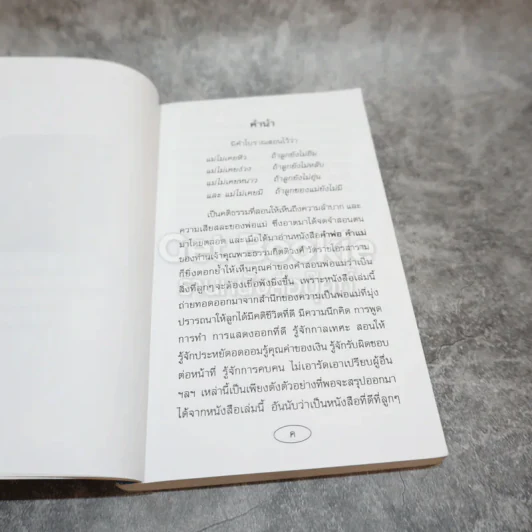 คำนำ
มีคำโบราณสอนไว้ว่า
แม่ไม่เคยหิว ถ้าลูกยังไม่อิ่ม
แม่ไม่เคยง่วง ถ้าลูกยังไม่หลับ
แม่ไม่เคยหนาว ถ้าลูกยังไม่อุ่น
และ แม่ไม่เคยมี ถ้าลูกของแม่ยังไม่มี
เป็นคติธรรมที่สอนให้เห็นถึงความลำบาก และ
ความเสียสละของพ่อแม่ ซึ่งอาตมาได้จดจำสอนตน
มาโดยตลอด และเมื่อได้มาอ่านหนังสือคำพ่อ คำแม่
ของท่านเจ้าคุณพระธรรมกิตติวงศ์ วัดราชโอรสาราม
ก็ยิ่งตอกย้ำให้เห็นคุณค่าของคำสอนพ่อแม่ว่าเป็น
สิ่งที่ลูกๆ จะต้องเชื่อฟังยิ่งขึ้น เพราะหนังสือเล่มนี้
ถ่ายทอดออกมาจากสำนึกของความเป็นพ่อแม่ที่มุ่ง
ปรารถนาให้ลูกได้มีคติชีวิตที่ดี มีความนึกคิด การพูด
การทำ การแสดงออกที่ดี รู้จักกาลเทศะ สอนให้
รู้จักประหยัดอดออมรู้คุณค่าของเงิน รู้จักรับผิดชอบ
ต่อหน้าที่ รู้จักการคบคน ไม่เอารัดเอาเปรียบผู้อื่น
ฯลฯ เหล่านี้เป็นเพียงดังตัวอย่างที่พอจะสรุปออกมา
ได้จากหนังสือเล่มนี้ อันนับว่าเป็นหนังสือที่ดีที่ลูกๆ
ค